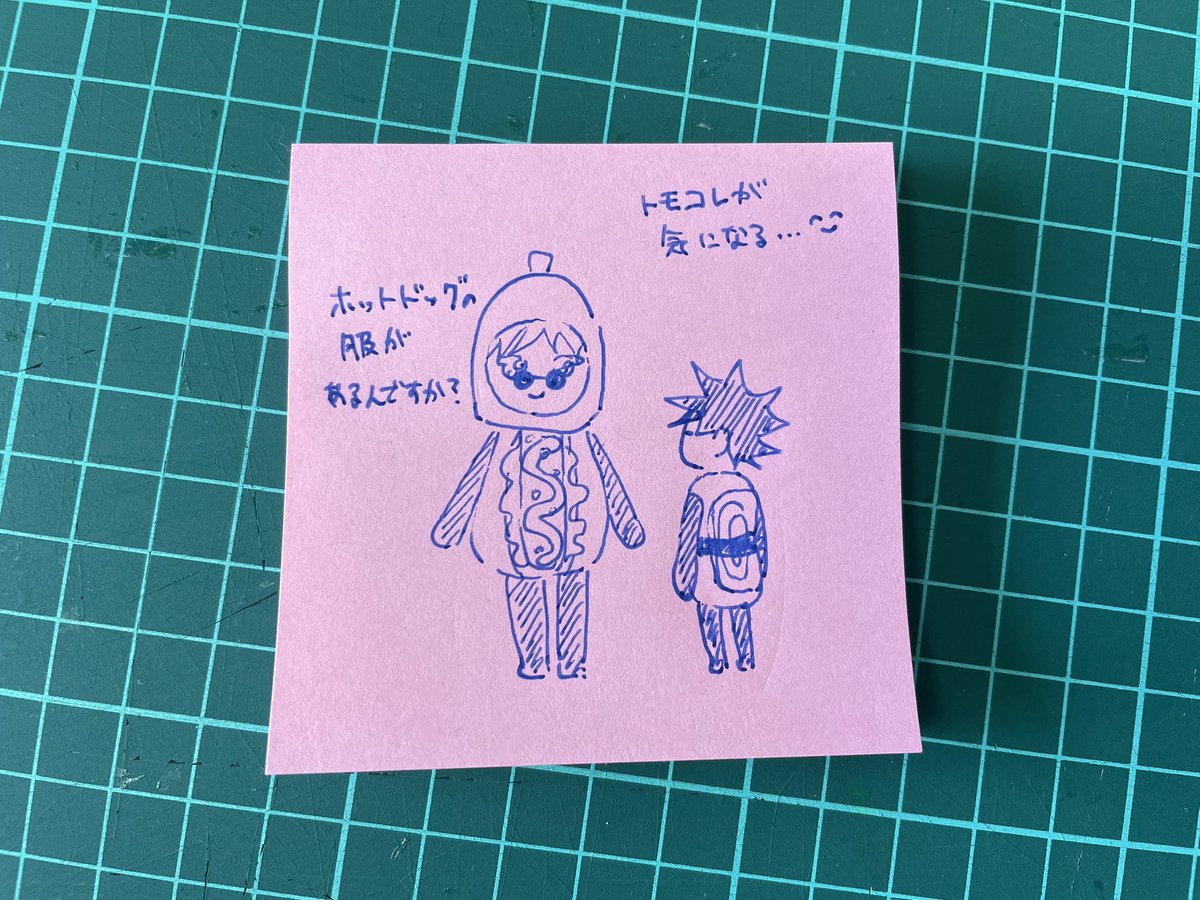 トモコレが
気になる…
ホットドッグの
服が
あるんですか?